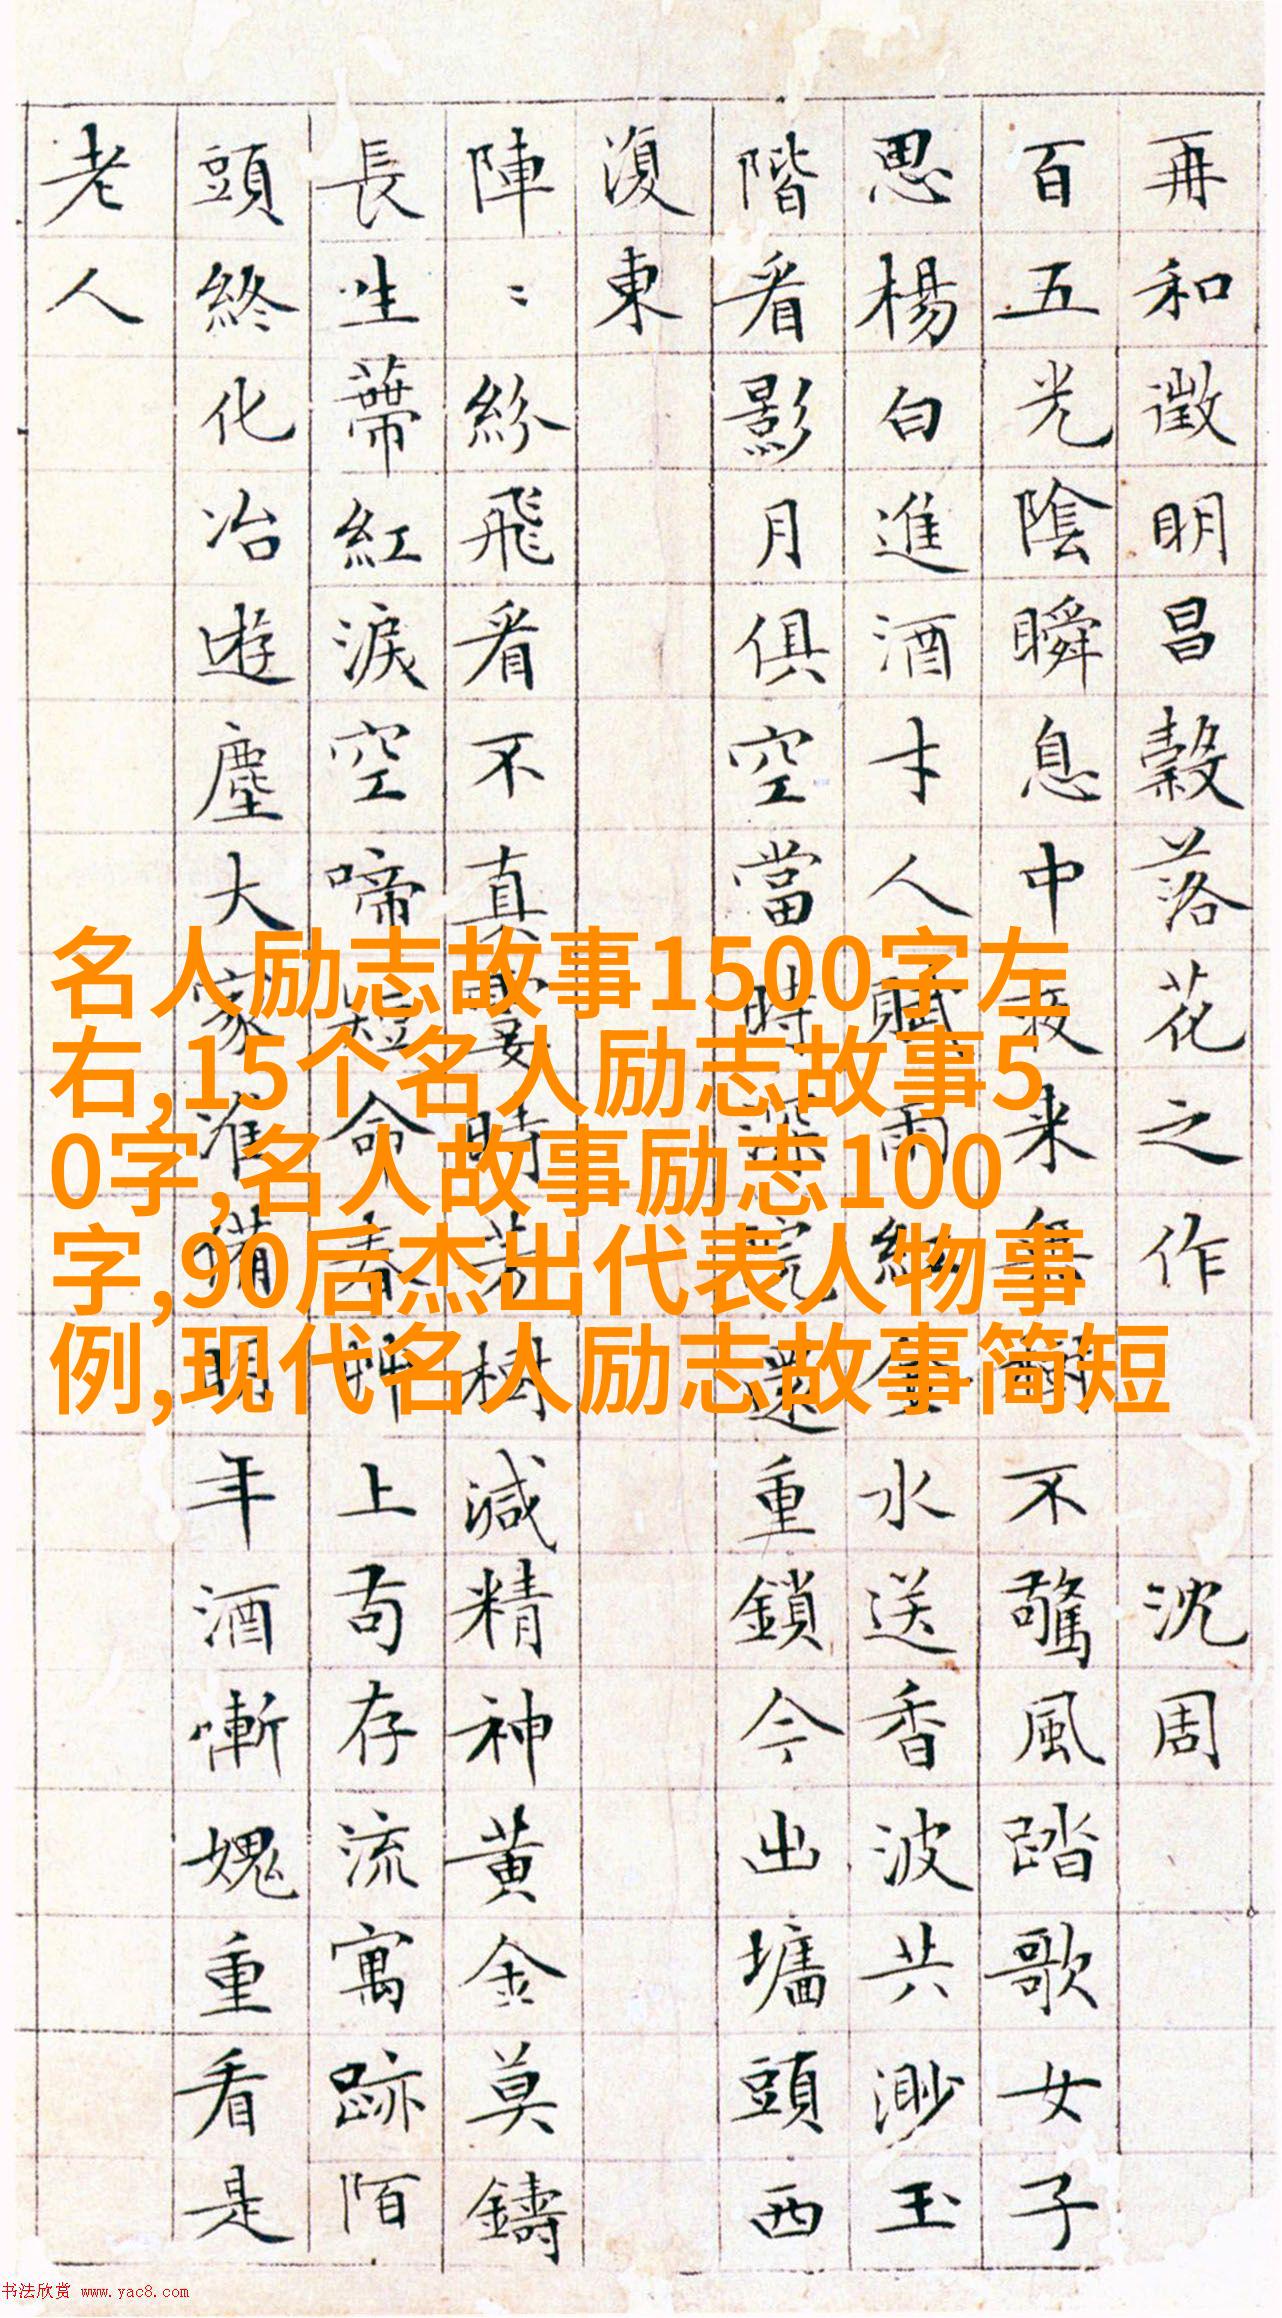 再和徵明昌穀落花之作 沈周
百五光陰瞬息中夜来無樹不驚風踏歌女子
思楊白進酒才人賦雨紅金水送香波共渺玉
階看影月俱空當時深院還重鎖今出墻頭西
復東
陣〻紛飛看不真霎時芳樹減精神黃金莫鑄
長生蒂紅淚空啼短命春草上苟存流寓跡陌
頭終化冶遊塵大家准備明年酒慚媿重看是
老人
名人励志故事1500字左
右,15个名人励志故事5
0字,名人故事励志100
字,90后杰出代表人物事
例,现代名人励志故事简短
书法欣赏 www.yac8.com